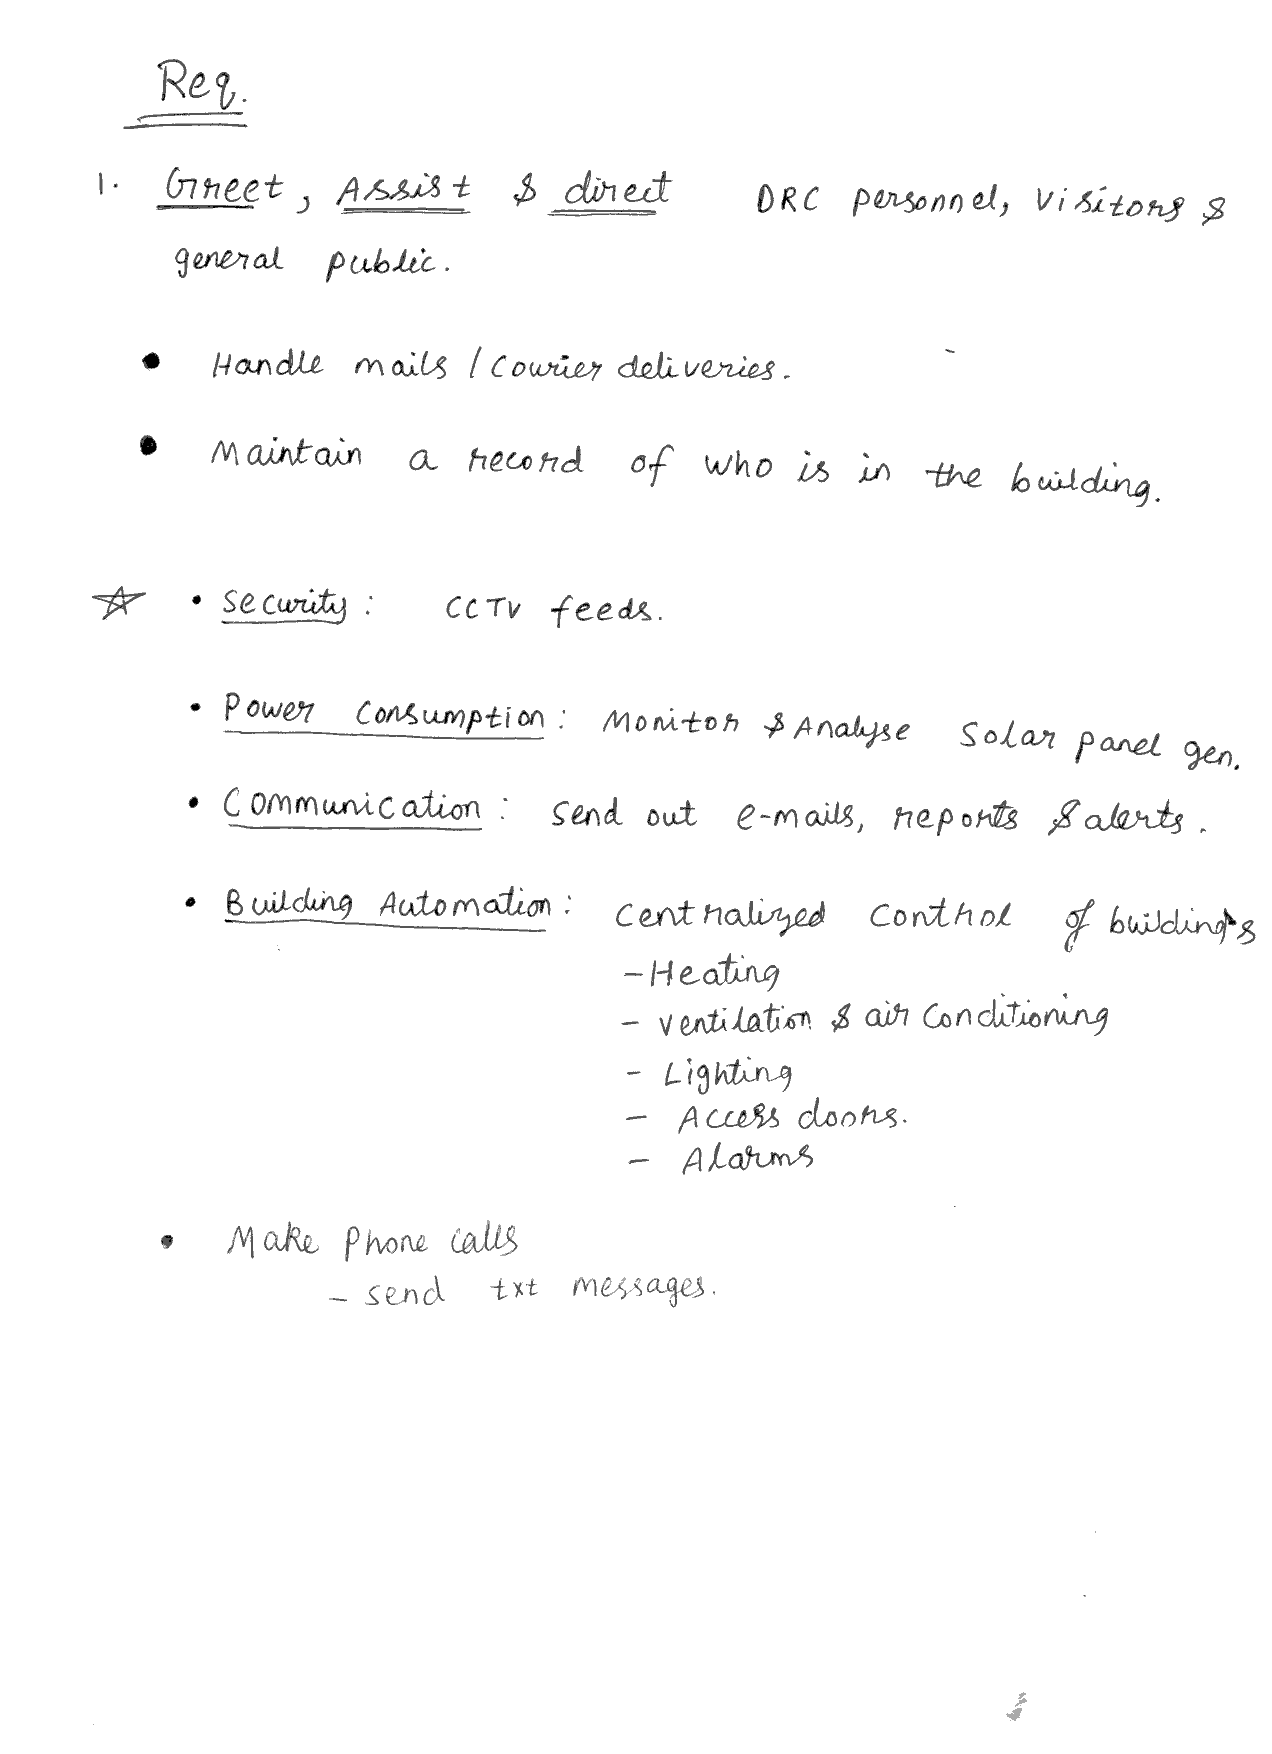 Req.
1. Greet, Assist & direct DRC personnel, visitors &
general public.
• Handle mails / courier deliveries.
• Maintain a record of who is in the building.
☆ • Security: CCTV feeds.
• Power Consumption: Monitor & Analyse Solar panel gen.
• Communication: send out e-mails, reports & alerts.
• Building Automation: centralized control of building's
- Heating
- ventilation & air conditioning
- Lighting
- Access doors.
- Alarms
• Make phone calls
- send txt messages.